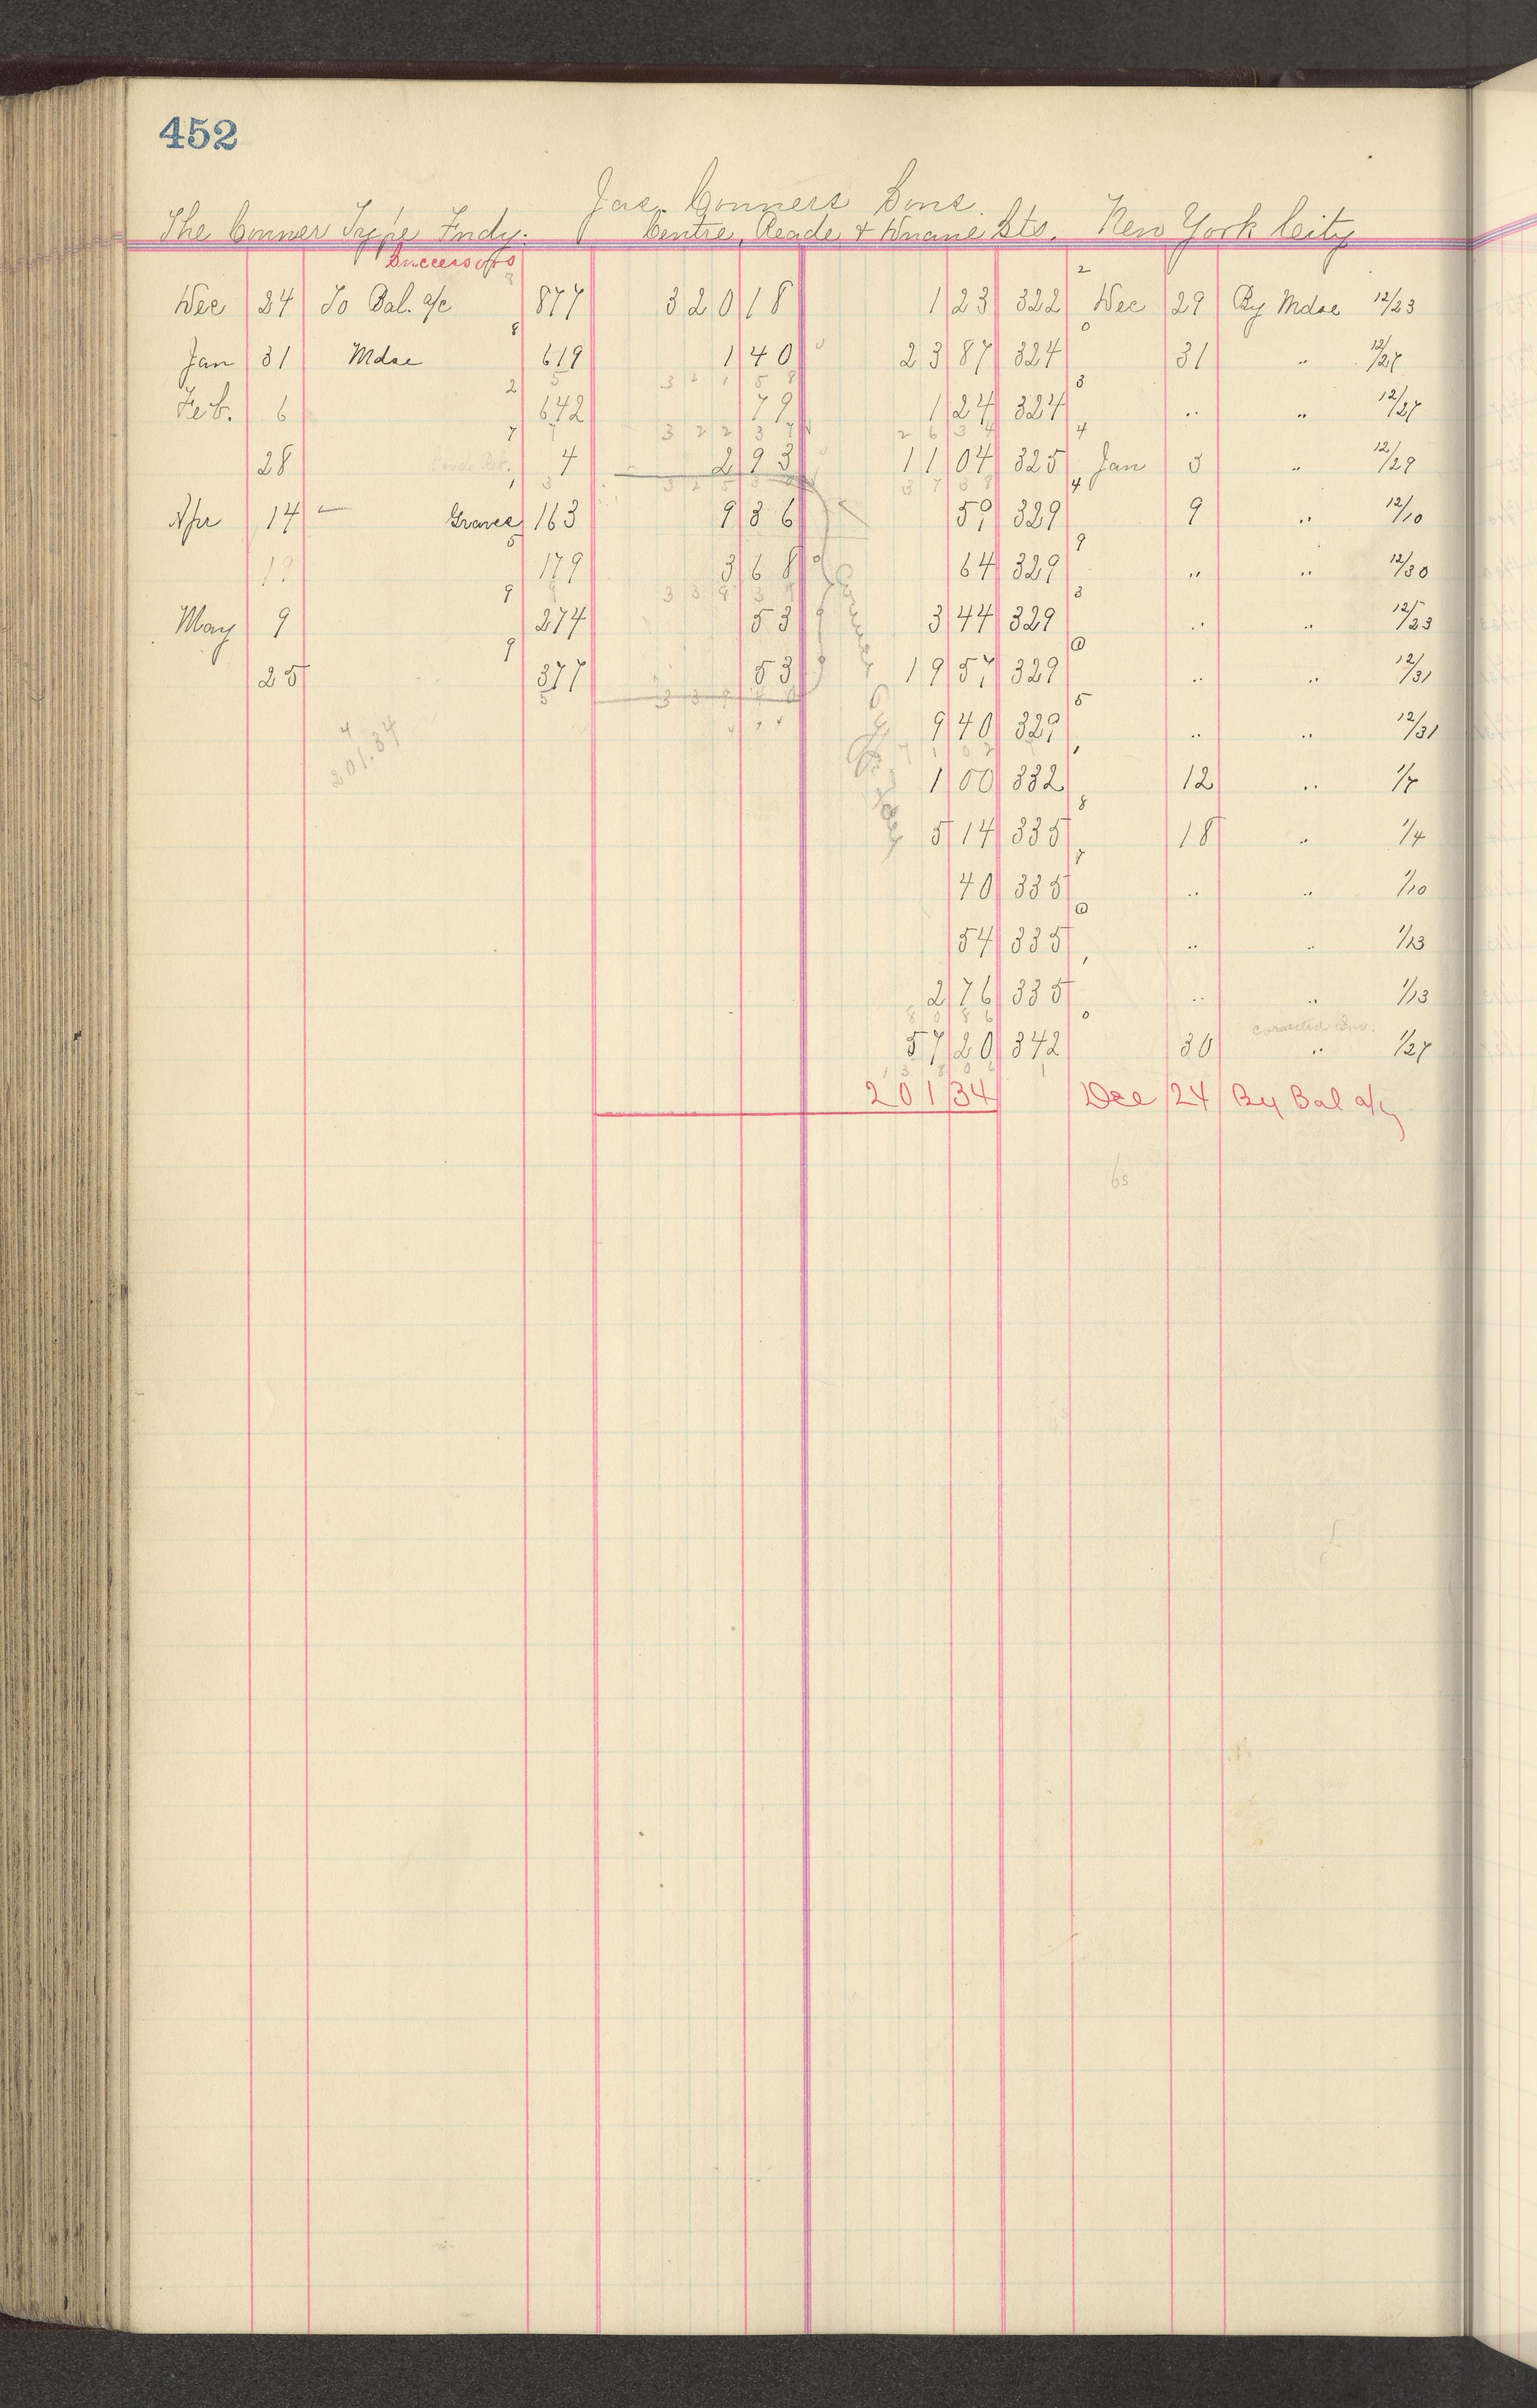 452
Jas. Conners Sons.
The Conner Type Fndy. Centre, Reade & Duane Sts. New York City
Successors
Dec 24 To Bal. a/c 877 320 18 1 23 322 Dec 29 By Mdse 12/23
Jan 31 Mdse 619 1 40 23 87 324 31 " 12/27
3 2 1 5 8
Feb. 6 642 79 1 24 324 " " 12/27
3 2 2 3 7 2 6 3 4
28 4 2 93 11 04 325 Jan 3 " 12/29
3 7 3 8
Apr 14 Graves 163 9 36 59 329 9 " 12/10
179 3 68 64 329 " " 12/30
May 9 274 53 3 44 329 " " 12/23
25 377 53 19 57 329 " " 12/31
9 40 329 " " 12/31
201.34
1 00 332 12 " 1/7
5 14 335 18 " 1/4
40 335 " " 1/10
54 335 " " 1/13
2 76 335 " " 1/13
8 0 8 6
corrected Inv.
57 20 342 30 " 1/27
201 34 Dec 24 By Bal a/c